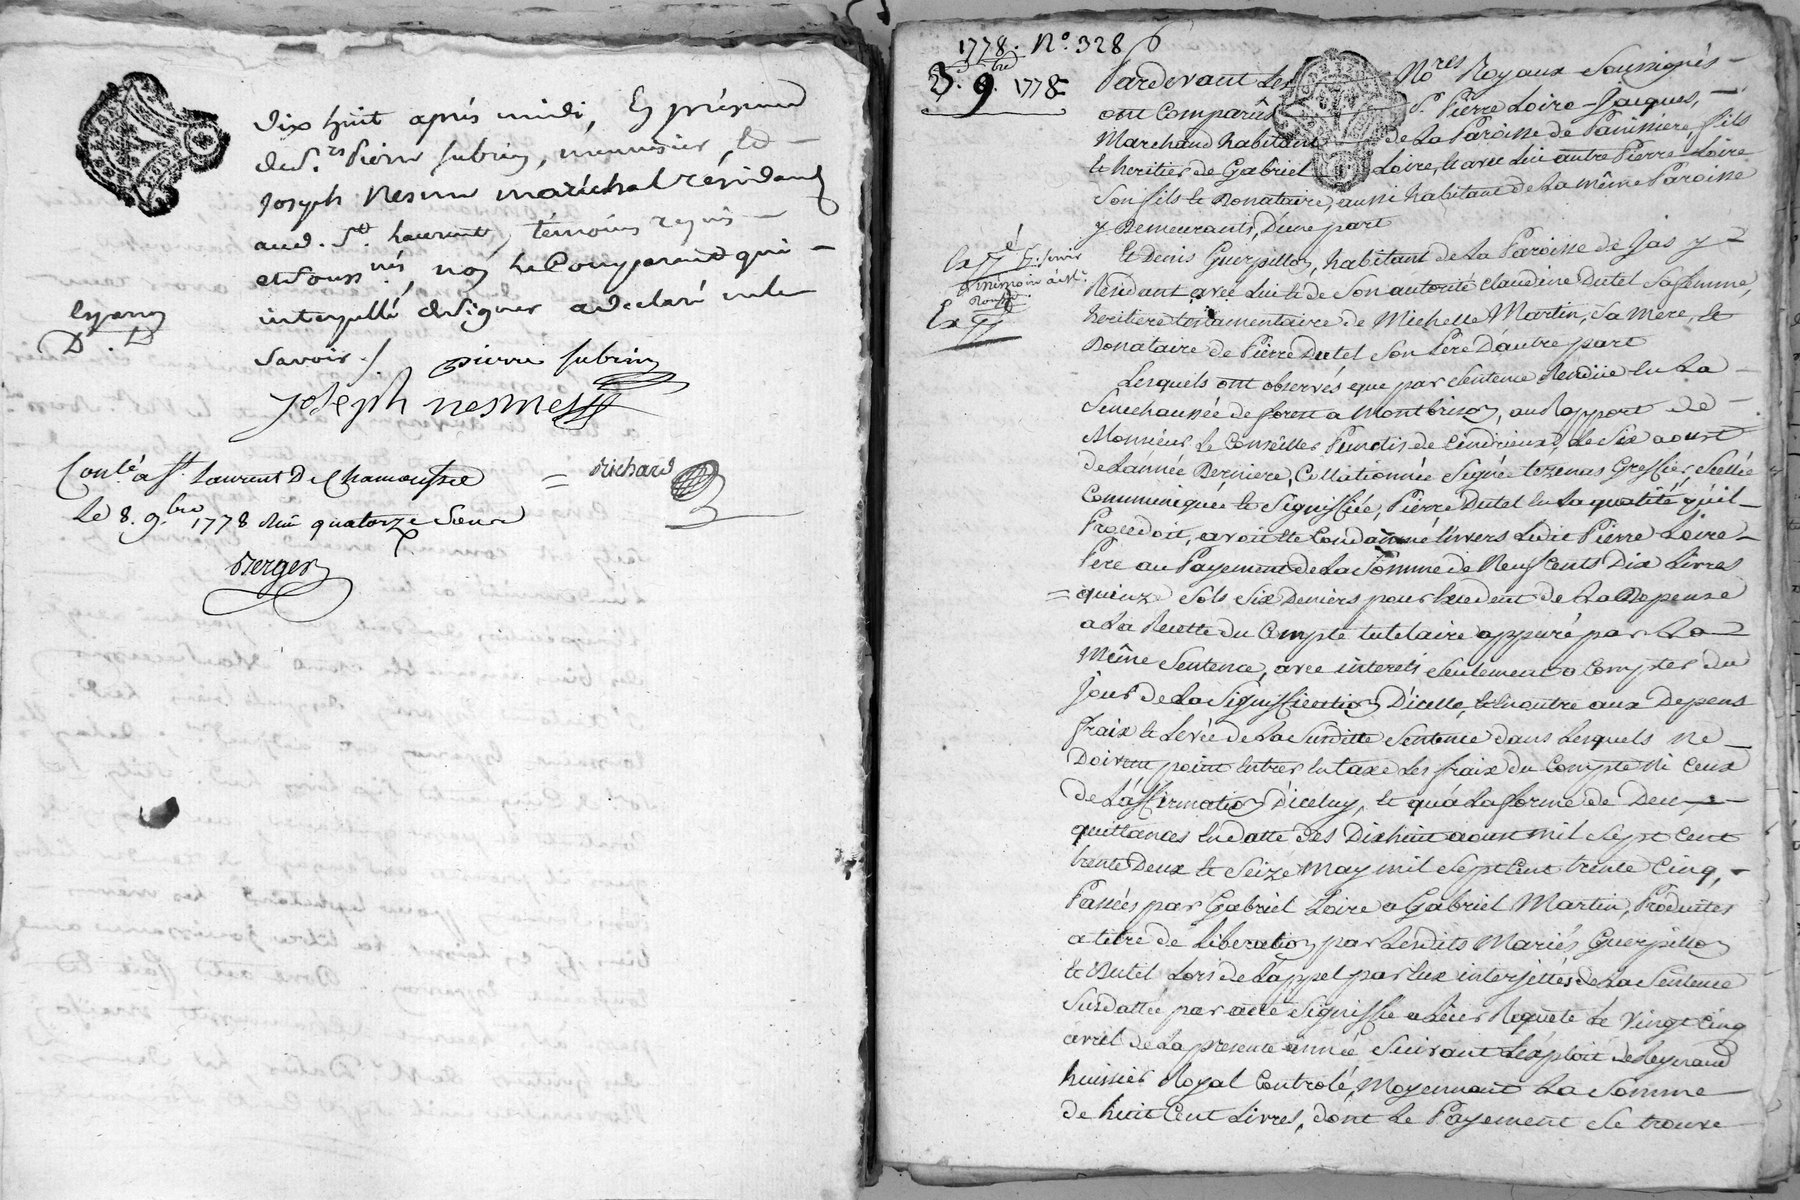 dix huit après midi, En présence
de Srs Pierre Subrin, menuisier, Et
Joseph Nesme maréchal résidants
aud. St. Laurent, témoins requis
et soussnés, non le Comparant qui
interpellé de signer a declaré ne le
savoir ./. pierre subrin
Joseph nesme
Conlé a St Laurent De Chamousset
Le 8. 9.bre 1778 Reçu quatorze Sous
Berger
= Richard
1778. No. 328
3. 9.bre 1778
Pardevant Les Nores Royaux Soussignés
ont Comparûs Sr. Pierre Loire-Jacques,
Marchand habitant de La Paroisse de Panissiere, fils
et heritier de Gabriel Loire, et avec Lui autre Pierre Loire
Son fils et Donataire, aussi habitant de La même Paroisse
y Demeurants, D'une part
Et Denis Guerpillon, habitant de La Paroisse de Jas y
Residant avec Lui et de Son autorité Claudine Dutel Sa femme,
heritiere testamentaire de Michelle Martin, Sa Mere, et
Donataire de Pierre Dutel Son Pere D'autre part
Lesquels ont observés que par Sentence Rendüe en La
Senechaussée de forest a Montbrison, au Rapport de
Monsieur Le Conseiller Punctis de Cindrieux, Le Six aoust
de L'année Derniere, Collationnée Signée tezenas Greffier Scellée
Communiquée et Signiffiée, Pierre Dutel en La qualité qu'il
Procedoit, avoit été Condamné Envers Ledit Pierre Loire
Pere au Payement de La Somme de Neuf Cents Dix Livres
= quinze Sols Six Deniers pour Excedent de La Depense
a La Recette du Compte tutelaire appuré par La
Même Sentence, avec interets Seulement a Compter du
Jour de La Signiffication D'icelle, et en outre aux Depens
fraix et Levée de La Susditte Sentence dans Lesquels ne
Doivent point Entrer en taxe Les fraix du Compte Ni Ceux
de L'affirmation D'iceluy, et qu'a La forme de Deux
quittances en datte des Dix huit aoust mil Sept Cent
trente Deux et Seize May mil Sept Cent trente Cinq,
Passées par Gabriel Loire a Gabriel Martin, Produites
a titre de Liberation par Lesdits Mariés Guerpillon
et Dutel Lors de L'appel par Eux interjettés de La Sentence
Susdattée par acte Signiffié a Leur Requete Le Vingt Cinq
avril de La presente année Suivant L'exploit de Reynaud
huissier Royal Controlé, Moyennant La Somme
de huit Cent Livres, dont Le Payement Se trouve